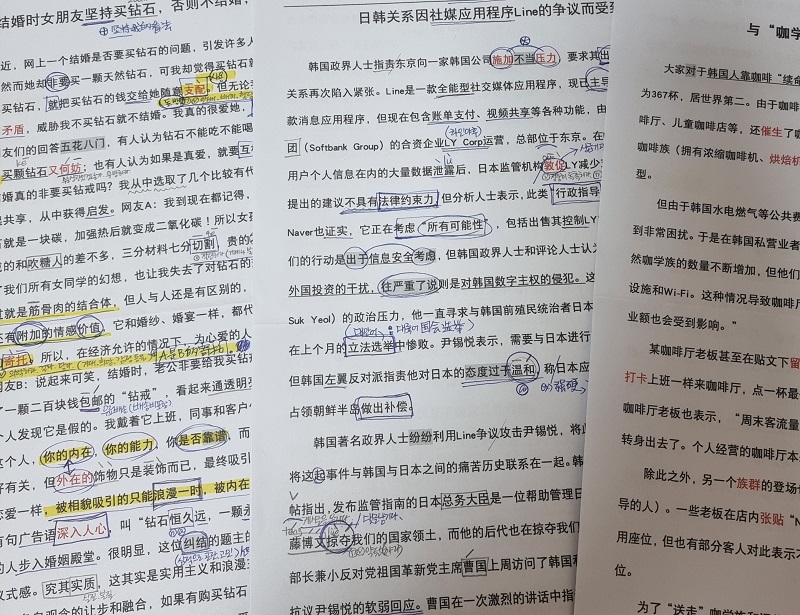 结婚时女朋友坚持买钻石，否则不结婚，
近，网上一个结婚是否要买钻石的问题，引发许多人
然而她却非要买一颗天然钻石，可我却觉得买钻石就
买钻石，就把买钻石的钱交给她随意支配。但无论
矛盾，威胁我不买钻石就不结婚。我真的很爱她，
友们的回答五花八门，有人认为钻石不能吃不能喝
买颗钻石又何妨；也有人认为如果是真爱，就要互
婚真的非要买钻戒吗？我从中选取了几个比较有代
起共享，从中获得启发。网友A：我到现在都记得，
石就是一块碳，加强热后就变成二氧化碳！所以女孩
成的和吹糖人的差不多，三分材料七分切割，贵的
了我们所有女同学的幻想，也让我失去了对钻石的
也就是筋骨肉的结合体，但人与人还是有区别的，
还有附加的情感价值，它和婚纱、婚宴一样，都代
寄托。所以，在经济允许的情况下，为心爱的人
网友B：说起来可笑，结婚时，老公非要给我买钻戒
一颗二百块钱包邮的“钻戒”，看起来通透明亮
个人发现它是假的。我戴着它上班，同事和客户
这个人，你的内在，你的能力，你是否靠谱，而
好有关，但外在的饰物只是装饰而已，最终吸引
恋爱一样，被相貌吸引的只能浪漫一时，被内在
有句广告语深入人心，叫“钻石恒久远，一颗永
的人步入婚姻殿堂。很明显，这位纠结的
仪式感。究其实质，这其实是实用主义和浪漫
观念的让步和融合，如果有购买钻石
日韩关系因社媒应用程序Line的争议而受到
韩国政界人士指责东京向一家韩国公司施加不当压力，要求其出
关系再次陷入紧张。Line是一款全能型社交媒体应用程序，现已主导
款消息应用程序，但现在包含账单支付、视频共享等各种功能，由
团（Softbank Group）的合资企业LY Corp运营，总部位于东京。在
用户个人信息在内的大量数据泄露后，日本监管机构敦促LY减少
提出的建议不具有法律约束力，但分析人士表示，此类“行政指导
Naver也证实，它正在考虑“所有可能性”，包括出售其控制LY
们的行动是出于信息安全考虑，但韩国政界人士和评论人士认为
外国投资的干扰，往严重了说则是对韩国数字主权的侵犯。这
Suk Yeol）的政治压力，他一直寻求与韩国前殖民统治者日本
在上个月的立法选举中惨败。尹锡悦表示，需要与日本进行
但韩国左翼反对派指责他对日本的态度过于温和，称日本应
占领朝鲜半岛做出补偿。
韩国著名政界人士纷纷利用Line争议攻击尹锡悦，将此
将这起事件与韩国与日本之间的痛苦历史联系在一起。韩
帖指出，发布监管指南的日本总务大臣是一位帮助管理日
藤博文掠夺我们的国家领土，而他的后代也在掠夺我们
部长兼小反对党祖国革新党主席曹国上周访问了韩国和
抗议尹锡悦的软弱回应。曹国在一次激烈的讲话中指
与“咖学
大家对于韩国人靠咖啡“续命
为367杯，居世界第二。由于咖啡
啡厅、儿童咖啡店等，还催生了咖
咖啡族（拥有浓缩咖啡机、烘焙机
型。
但由于韩国水电燃气等公共费
到非常困扰。于是在韩国私营业者
然咖学族的数量不断增加，但他们
设施和Wi-Fi。这种情况导致咖啡厅
业额也会受到影响。”
某咖啡厅老板甚至在贴文下留
打卡上班一样来咖啡厅，点一杯最
咖啡厅老板也表示，“周末客流量
转身出去了。个人经营的咖啡厅本
除此之外，另一个族群的登场
导的人）。一些老板在店内张贴“N
用座位，但也有部分客人对此表示不
位。
为了“送走”咖学族和